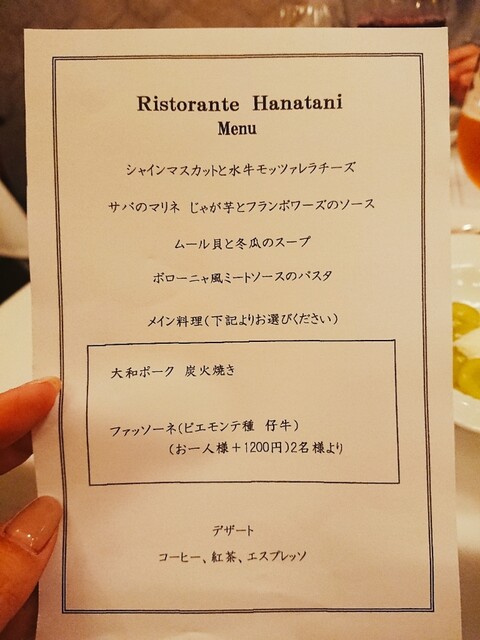 Ristorante Hanatani
Menu
シャインマスカットと水牛モッツァレラチーズ
サバのマリネ じゃが芋とフランボワーズのソース
ムール貝と冬瓜のスープ
ボローニャ風ミートソースのパスタ
メイン料理(下記よりお選びください)
大和ポーク 炭火焼き
ファッソーネ(ピエモンテ種 仔牛)
(お一人様+1200円)2名様より
デザート
コーヒー、紅茶、エスプレッソ